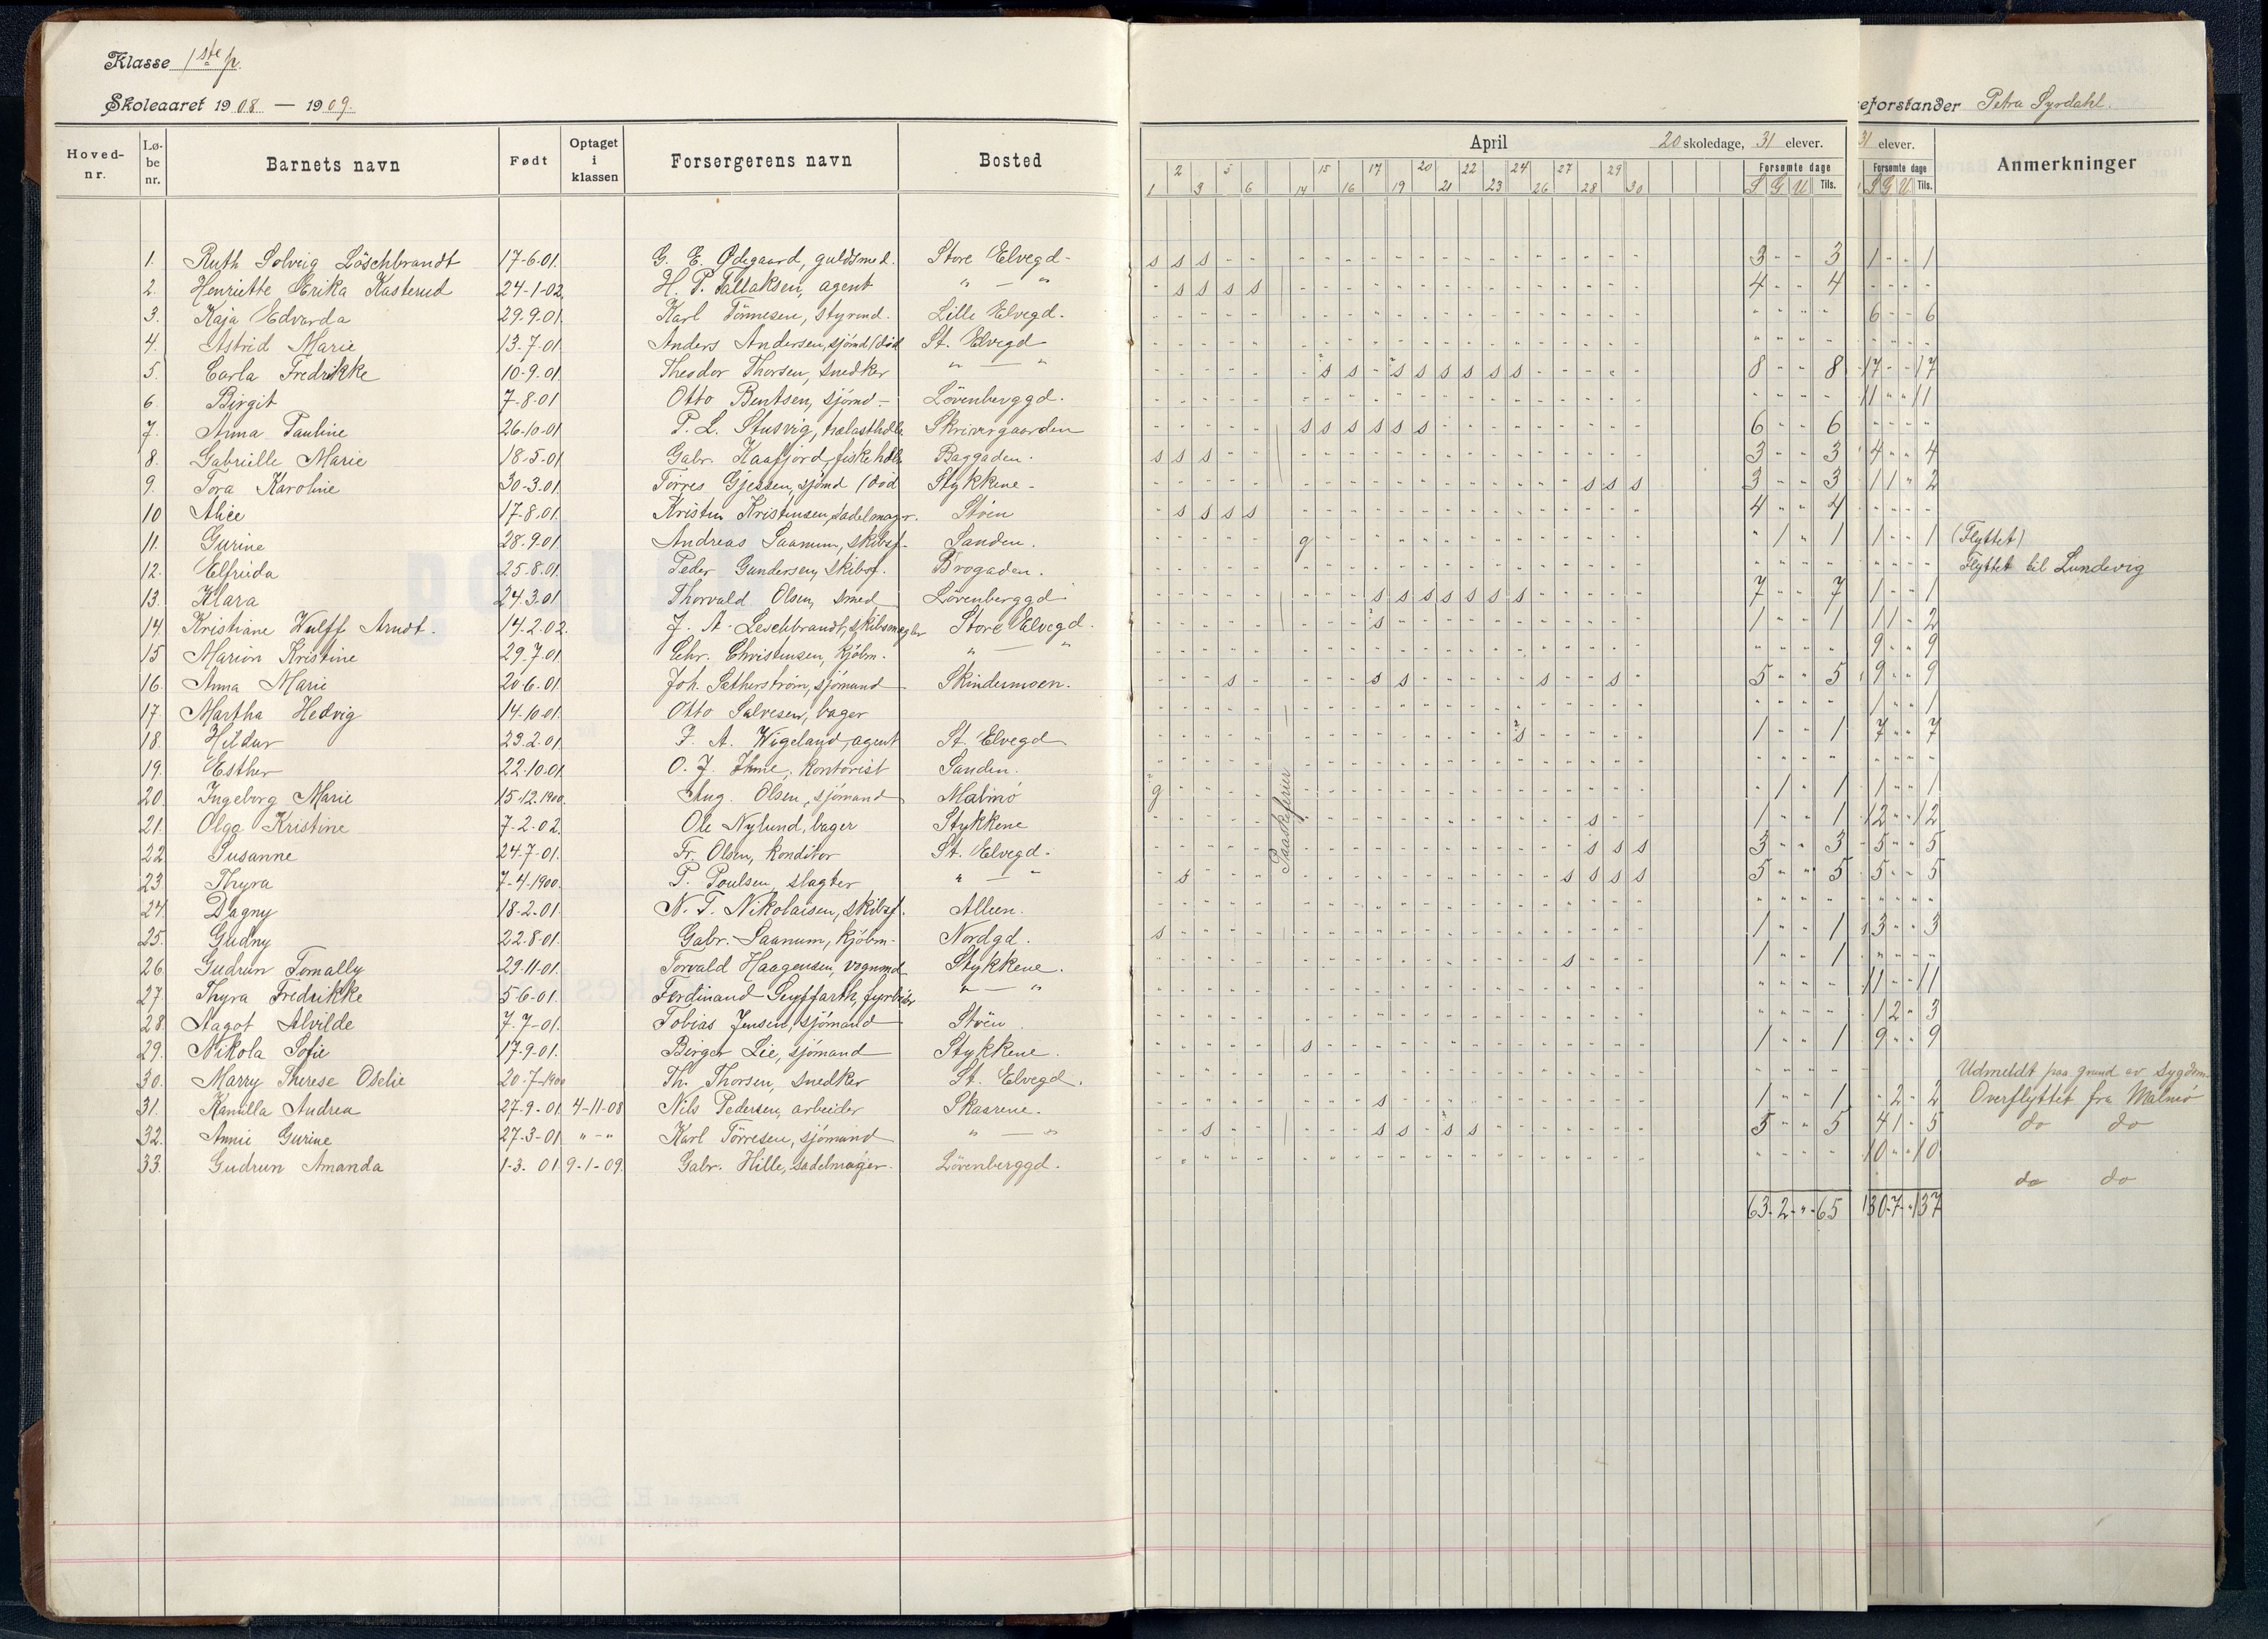 Klasse 1ste p.
Skoleaaret 1908 — 1909.
Hoved-nr. Lø-be nr. Barnets navn Født Optaget i klassen Forsørgerens navn Bosted
1. Ruth Solveig Löschbrandt 17-6-01. G. E. Ødegaard, guldsmed. Store Elvegd-
2. Henriette Erika Kasterud 24-1-02. H. P. Tallaksen, agent " — "
3. Kaja Edvarda 29.9.01. Karl Tönnesen, styrmd. Lille Elvegd.
4. Astrid Marie 13-7-01. Anders Andersen, sjömd (död St. Elvegd
5. Carla Fredrikke 10-9.01. Theodor Thorsen, snedker " — "
6. Birgit 7-8-01 Otto Bentsen, sjömd- Lövenberggd.
7. Anna Pauline 26-10-01 P. L. Stusvig, trælasthdlr Skriversgaarden
8. Gabrielle Marie 18-5-01 Gabr. Kaafjord, fiskehdlr Baggaden.
9. Tora Karoline 30-3.01. Törres Gjessen, sjömd (död Stykkene-
10 Alice 17-8.01. Kristen Kristensen, sadelmager. Stöen
11. Gurine 28.9.01. Andreas Saanum, skibsf. Sanden.
12. Elfrida 25.8.01. Peder Gundersen, skibsf. Brogaden.
13. Klara 24.3.01 Thorvald Olsen, smed Lövenberggd
14. Kristiane Wulff Arndt. 14.2.02. J. A. Leschbrandt, skibsmægler Store Elvegd.
15 Marion Kristine 29.7.01. Chr. Christensen, kjöbm. " — "
16. Anna Marie 20-6-01. Joh. Satherström, sjömand Skindermoen.
17. Martha Hedvig 14-10-01. Otto Salvesen, bager
18. Hildur 23.2.01. F. A. Wigeland, agent St. Elvegd
19. Esther 22.10.01. O. J. Ihme, kontorist Sanden.
20. Ingeborg Marie 15-12.1900. Aug. Olsen, sjömand Malmö
21. Olga Kristine 7-2-02. Ole Nylund, bager Stykkene
22. Susanne 24.7-01. Fr. Olsen, konditor St. Elvegd.
23 Thyra 7-4-1900. P. Poulsen, slagter " — "
24. Dagny 18-2-01. N. T. Nikolaisen, skibsf. Alleen.
25. Gudny 22.8-01. Gabr. Saanum, kjöbm- Nordgd.
26 Gudrun Tomally 29.11-01. Torvald Haagensen, vognmd Stykkene.
27. Thyra Fredrikke 5-6-01. Ferdinand Seyffarth, fyrböder " — "
28. Aagot Alvilde 7.7-01. Tobias Jensen, sjömand Stöen
29. Nikola Sofie 17-9-01. Birger Lie, sjömand Stykkene.
30. Marry Therese Oselie 20-7-1900 Th. Thorsen, snedker St. Elvegd.
31. Kamilla Andrea 27-9-01. 4-11-08 Nils Pedersen, arbeider Skasrene.
32. Annie Gurine 27-3-01 " - " Karl Törresen, sjömand " — "
33. Gudrun Amanda 1-3. 01. 9-1-09. Gabr. Hille, sadelmager. Lövenberggd.
April 20 skoledage, 31 elever.
1 2 3 5 6 14 15 16 17 19 20 21 22 23 24 26 27 28 29 30 Forsømte dage S G U Tils.
s s s 3 - - 3
s s s s 4 - - 4
s s s s s s s s 8 - - 8
s s s s s s 6 - - 6
s s s 3 - - 3
s s s 3 - - 3
s s s s 4 - - 4
g " 1 " 1
s s s s s s s 7 - - 7
s 1 - - 1
s s s s s 5 - - 5
s 1 - - 1
g - 1 - 1
s 1 - - 1
s s s 3 - - 3
s s s s s 5 - - 5
s 1 - - 1
s 1 - - 1
s 1 - - 1
s 1 - - 1
s s s s s 5 - - 5
63. 2 - " - 65
Paaskeferier
eforstander Petra Syrdahl.
31 elever.
Forsømte dage S G U Tils. Anmerkninger
1 - - 1
6 - - 6
17 - - 17
11 - - 11
4 - - 4
1 1 " 2
1 - - 1 (Flyttet)
Flyttet til Lundevig
1 - - 1
1 1 - 2
9 - - 9
9 - - 9
1 - - 1
7 - - 7
1 - - 1
12 - - 12
5 - - 5
5 - - 5
3 - - 3
11 - - 11
1 2 - 3
9 - - 9
Udmeldt paa grund av sygdom.
- 2 - 2 Overflyttet fra Malmö
4 1 - 5 do do
10 - - 10
do do
130 - 7 - - 137